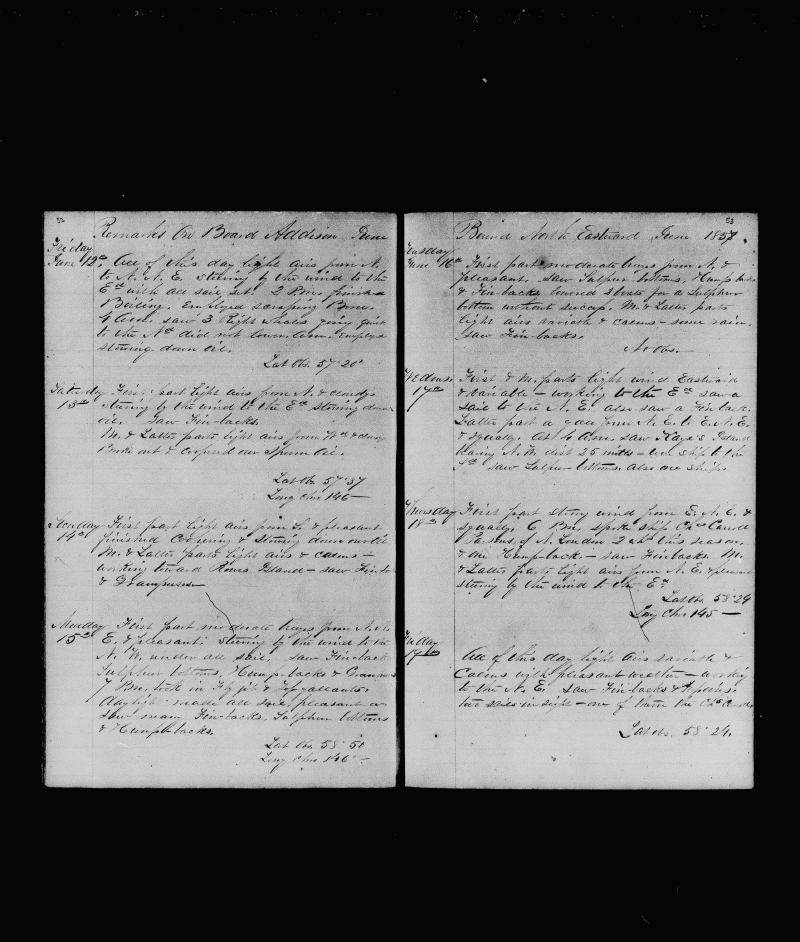 52
Remarks On Board Addison June
Friday
June 12th All of this day light airs from N.
to N. N. E. steering by the wind to the
Ed with all sail set. 2 P.M. finished
Boiling. Employed scraping Bone.
4 A.M. saw 3 Right Whales going quick
to the Nd did not lower.
stowing down oil.
Lat Obs. 57°20'
Saturday First part light airs from N. & cloudy.
13th steering by the wind to the Ed stowing down
oil. saw Fin-backs.
M. & Latter parts light airs from Wd & cloudy
Broke out & coopered our sperm oil.
Lat Obs 57°37
Long Chr 146 —
Sunday First part light airs from S. & pleasant
14th finished Coopering & stowing down our Oil
M. & Latter parts light airs & calms —
working toward Island — saw Fin-backs
& Grampuses —
Monday First part moderate breeze from N. N.
15th E. & pleasant. steering by the wind to the
N. W. under all sail. saw Fin-backs
Sulphur bottoms, Hump-backs & Grampuses
7 P.M. took in Fly jib & Topgallants.
daylight made all sail. pleasant
saw many Fin-backs, Sulphur bottoms
& Hump-backs.
Lat Obs 58°50
Long Chr 146° —
53
Bound North Eastward June 1857.
Tuesday
June 16th First part moderate breeze from N. &
pleasant. saw Sulphur bottoms, Humpbacks
& Fin-backs lowered 3 boats for a Sulphur
bottom without success. M. & Latter parts
light airs variable & calms — some rain.
saw Fin-backs.
No obs.
Wednesday First & M. parts light wind Eastward
17th & variable — working to the Ed saw a
sail to the N. E. also saw a Fin-back.
Latter part a gale from N. E. to E. N. E.
& squally. At 4 A.M. saw Kaye's Island
bearing N. W. dist 25 miles — wore ship to the
Sd saw Sulphur-bottoms. also one ship.
Thursday First part strong wind from E. N. E. &
18th squally. 6 P.M. spoke ship Chs Carroll
Parsons, of N. London 2 whs this season,
& one Hump-back — saw Fin-backs. M.
& Latter parts light airs from N. E. & pleasant
steering by the wind to the Ed
Lat obs 58°29
Long Chr 145 —
Friday
19th All of this day light airs variable &
Calms with pleasant weather — working
to the N. E. saw Fin-backs &
two sails in sight — one of them the Chs Carroll.
Lat obs. 58°24.